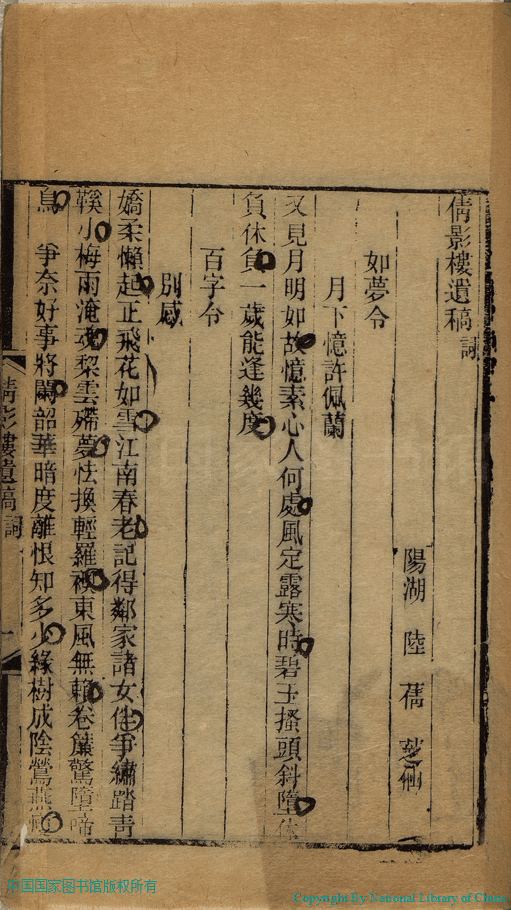 倩影樓遺稿 詞
陽湖 陸 蒨 芝仙
如夢令
月下憶許佩蘭
又見月明如故憶素心人何處風定露寒時碧玉搔頭斜墮休
負休負一歲能逢幾度
百字令
別感
嬌柔懶起正飛花如雪江南春老記得鄰家諸女伴爭繡踏青
鞵小梅雨淹魂梨雲殢夢怯換輕羅襖東風無賴卷簾驚墮啼
鳥 爭奈好事將闌韶華暗度離恨知多少綠樹成陰鶯燕
倩影樓遺稿 詞 一
中国国家图书馆版权所有
Copyright By National Library of China